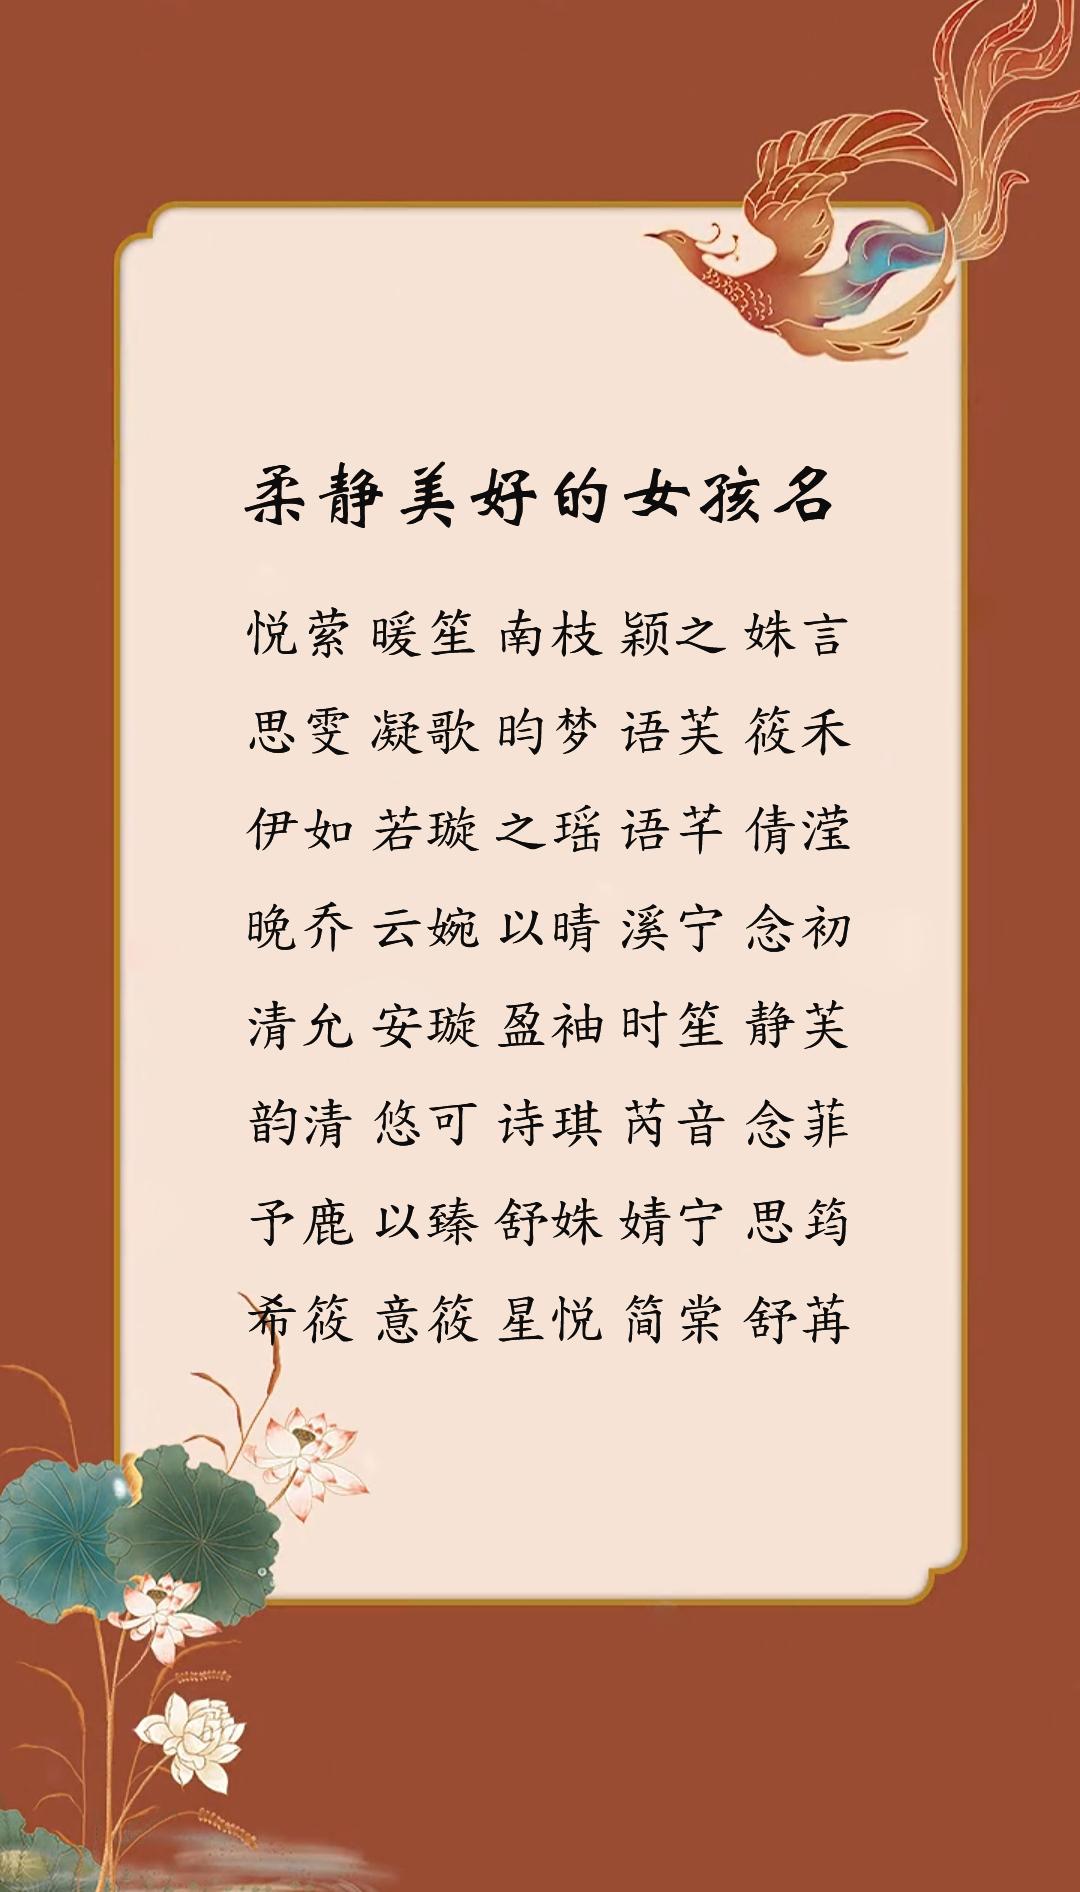 柔静美好的女孩名
悦萦 暖笙 南枝 颖之 姝言
思雯 凝歌 昀梦 语芙 筱禾
伊如 若璇 之瑶 语芊 倩滢
晚乔 云婉 以晴 溪宁 念初
清允 安璇 盈袖 时笙 静芙
韵清 悠可 诗琪 芮音 念菲
予鹿 以臻 舒姝 婧宁 思筠
希筱 意筱 星悦 简棠 舒苒